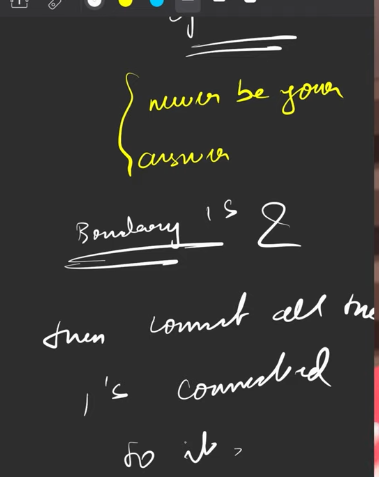 never be your
answer
Boundary is 2
then connect all the
1's connected
to it,